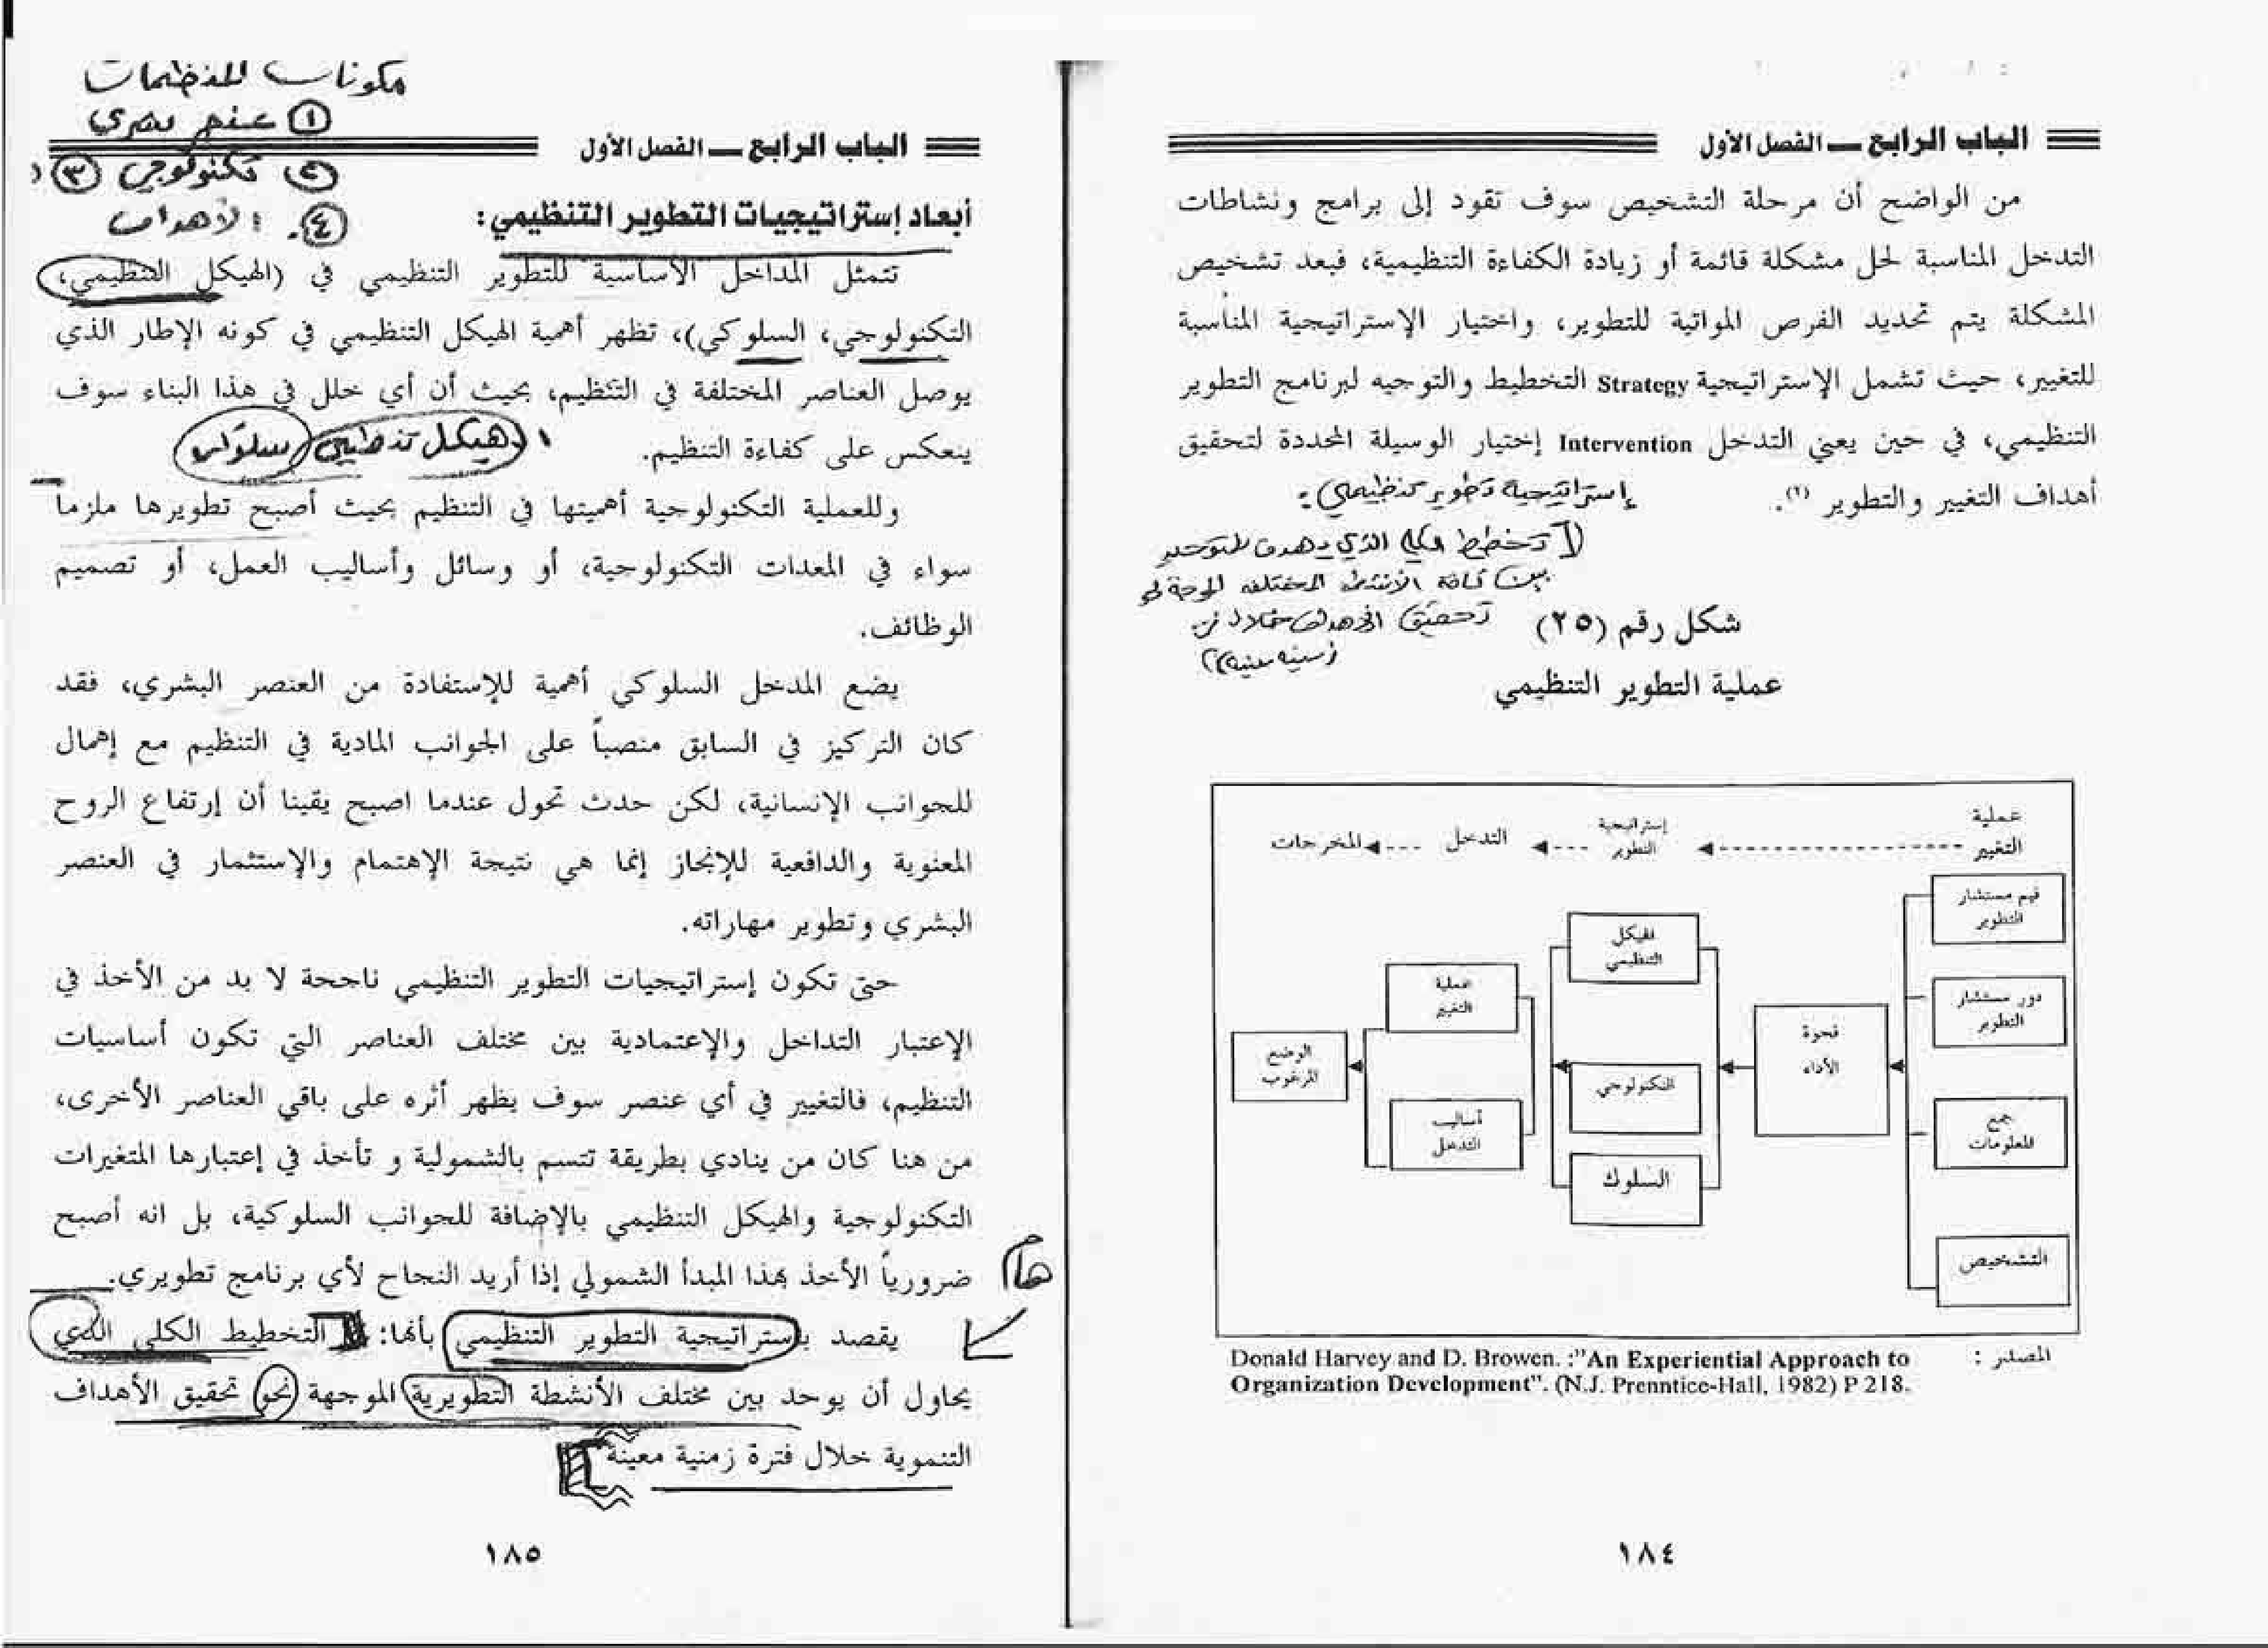 الباب الرابع ـ الفصل الأول
من الواضح أن مرحلة التشخيص سوف تقود إلى برامج ونشاطات
التدخل المناسبة لحل مشكلة قائمة أو زيادة الكفاءة التنظيمية، فبعد تشخيص
المشكلة يتم تحديد الفرص المواتية للتطوير، واختيار الإستراتيجية المناسبة
للتغيير، حيث تشمل الإستراتيجية Strategy التخطيط والتوجيه لبرنامج التطوير
التنظيمي، في حين يعني التدخل Intervention إختيار الوسيلة المحددة لتحقيق
أهداف التغيير والتطوير (٢).
إستراتيجية تطوير تنظيمي :
تخطيط الكلي الذي يهدف للتوحيد
بين كافة الأنشطة المختلفة الموجهة نحو
تحقيق خلال
شكل رقم (٢٥)
عملية التطوير التنظيمي
عملية
التغيير
إستراتيجية
التطوير
التدخل
المخرجات
قيم مستشار
التطوير
دور مستشار
التطوير
جمع
المعلومات
التشخيص
فجوة
الأداء
الهيكل
التنظيمي
التكنولوجي
السلوك
عملية
التغيير
أساليب
التدخل
الوضع
المرغوب
المصدر :
Donald Harvey and D. Browen. :"An Experiential Approach to
Organization Development". (N.J. Prenntice-Hall, 1982) P 218.
١٨٤
مكونات المنظمات
١ عنصر بشري
٢ تكنولوجي ٣
٤ الأهداف
الباب الرابع ـ الفصل الأول
أبعاد إستراتيجيات التطوير التنظيمي:
تتمثل المداخل الأساسية للتطوير التنظيمي في (الهيكل التنظيمي،
التكنولوجي، السلوكي)، تظهر أهمية الهيكل التنظيمي في كونه الإطار الذي
يوصل العناصر المختلفة في التنظيم، بحيث أن أي خلل في هذا البناء سوف
ينعكس على كفاءة التنظيم.
هيكل تنظيمي سلوكي
وللعملية التكنولوجية أهميتها في التنظيم بحيث أصبح تطويرها ملزما
سواء في المعدات التكنولوجية، أو وسائل وأساليب العمل، أو تصميم
الوظائف.
يضع المدخل السلوكي أهمية للإستفادة من العنصر البشري، فقد
كان التركيز في السابق منصباً على الجوانب المادية في التنظيم مع إهمال
للجوانب الإنسانية، لكن حدث تحول عندما اصبح يقينا أن إرتفاع الروح
المعنوية والدافعية للإنجاز إنما هي نتيجة الإهتمام والإستثمار في العنصر
البشري وتطوير مهاراته.
حتى تكون إستراتيجيات التطوير التنظيمي ناجحة لا بد من الأخذ في
الإعتبار التداخل والإعتمادية بين مختلف العناصر التي تكون أساسيات
التنظيم، فالتغيير في أي عنصر سوف يظهر أثره على باقي العناصر الأخرى،
من هنا كان من ينادي بطريقة تتسم بالشمولية و تأخذ في إعتبارها المتغيرات
التكنولوجية والهيكل التنظيمي بالإضافة للجوانب السلوكية، بل انه أصبح
ضرورياً الأخذ بهذا المبدأ الشمولي إذا أريد النجاح لأي برنامج تطويري.
هام
يقصد بإستراتيجية التطوير التنظيمي بأنها: التخطيط الكلي الذي
يحاول أن يوحد بين مختلف الأنشطة التطويرية الموجهة نحو تحقيق الأهداف
التنموية خلال فترة زمنية معينة
١٨٥